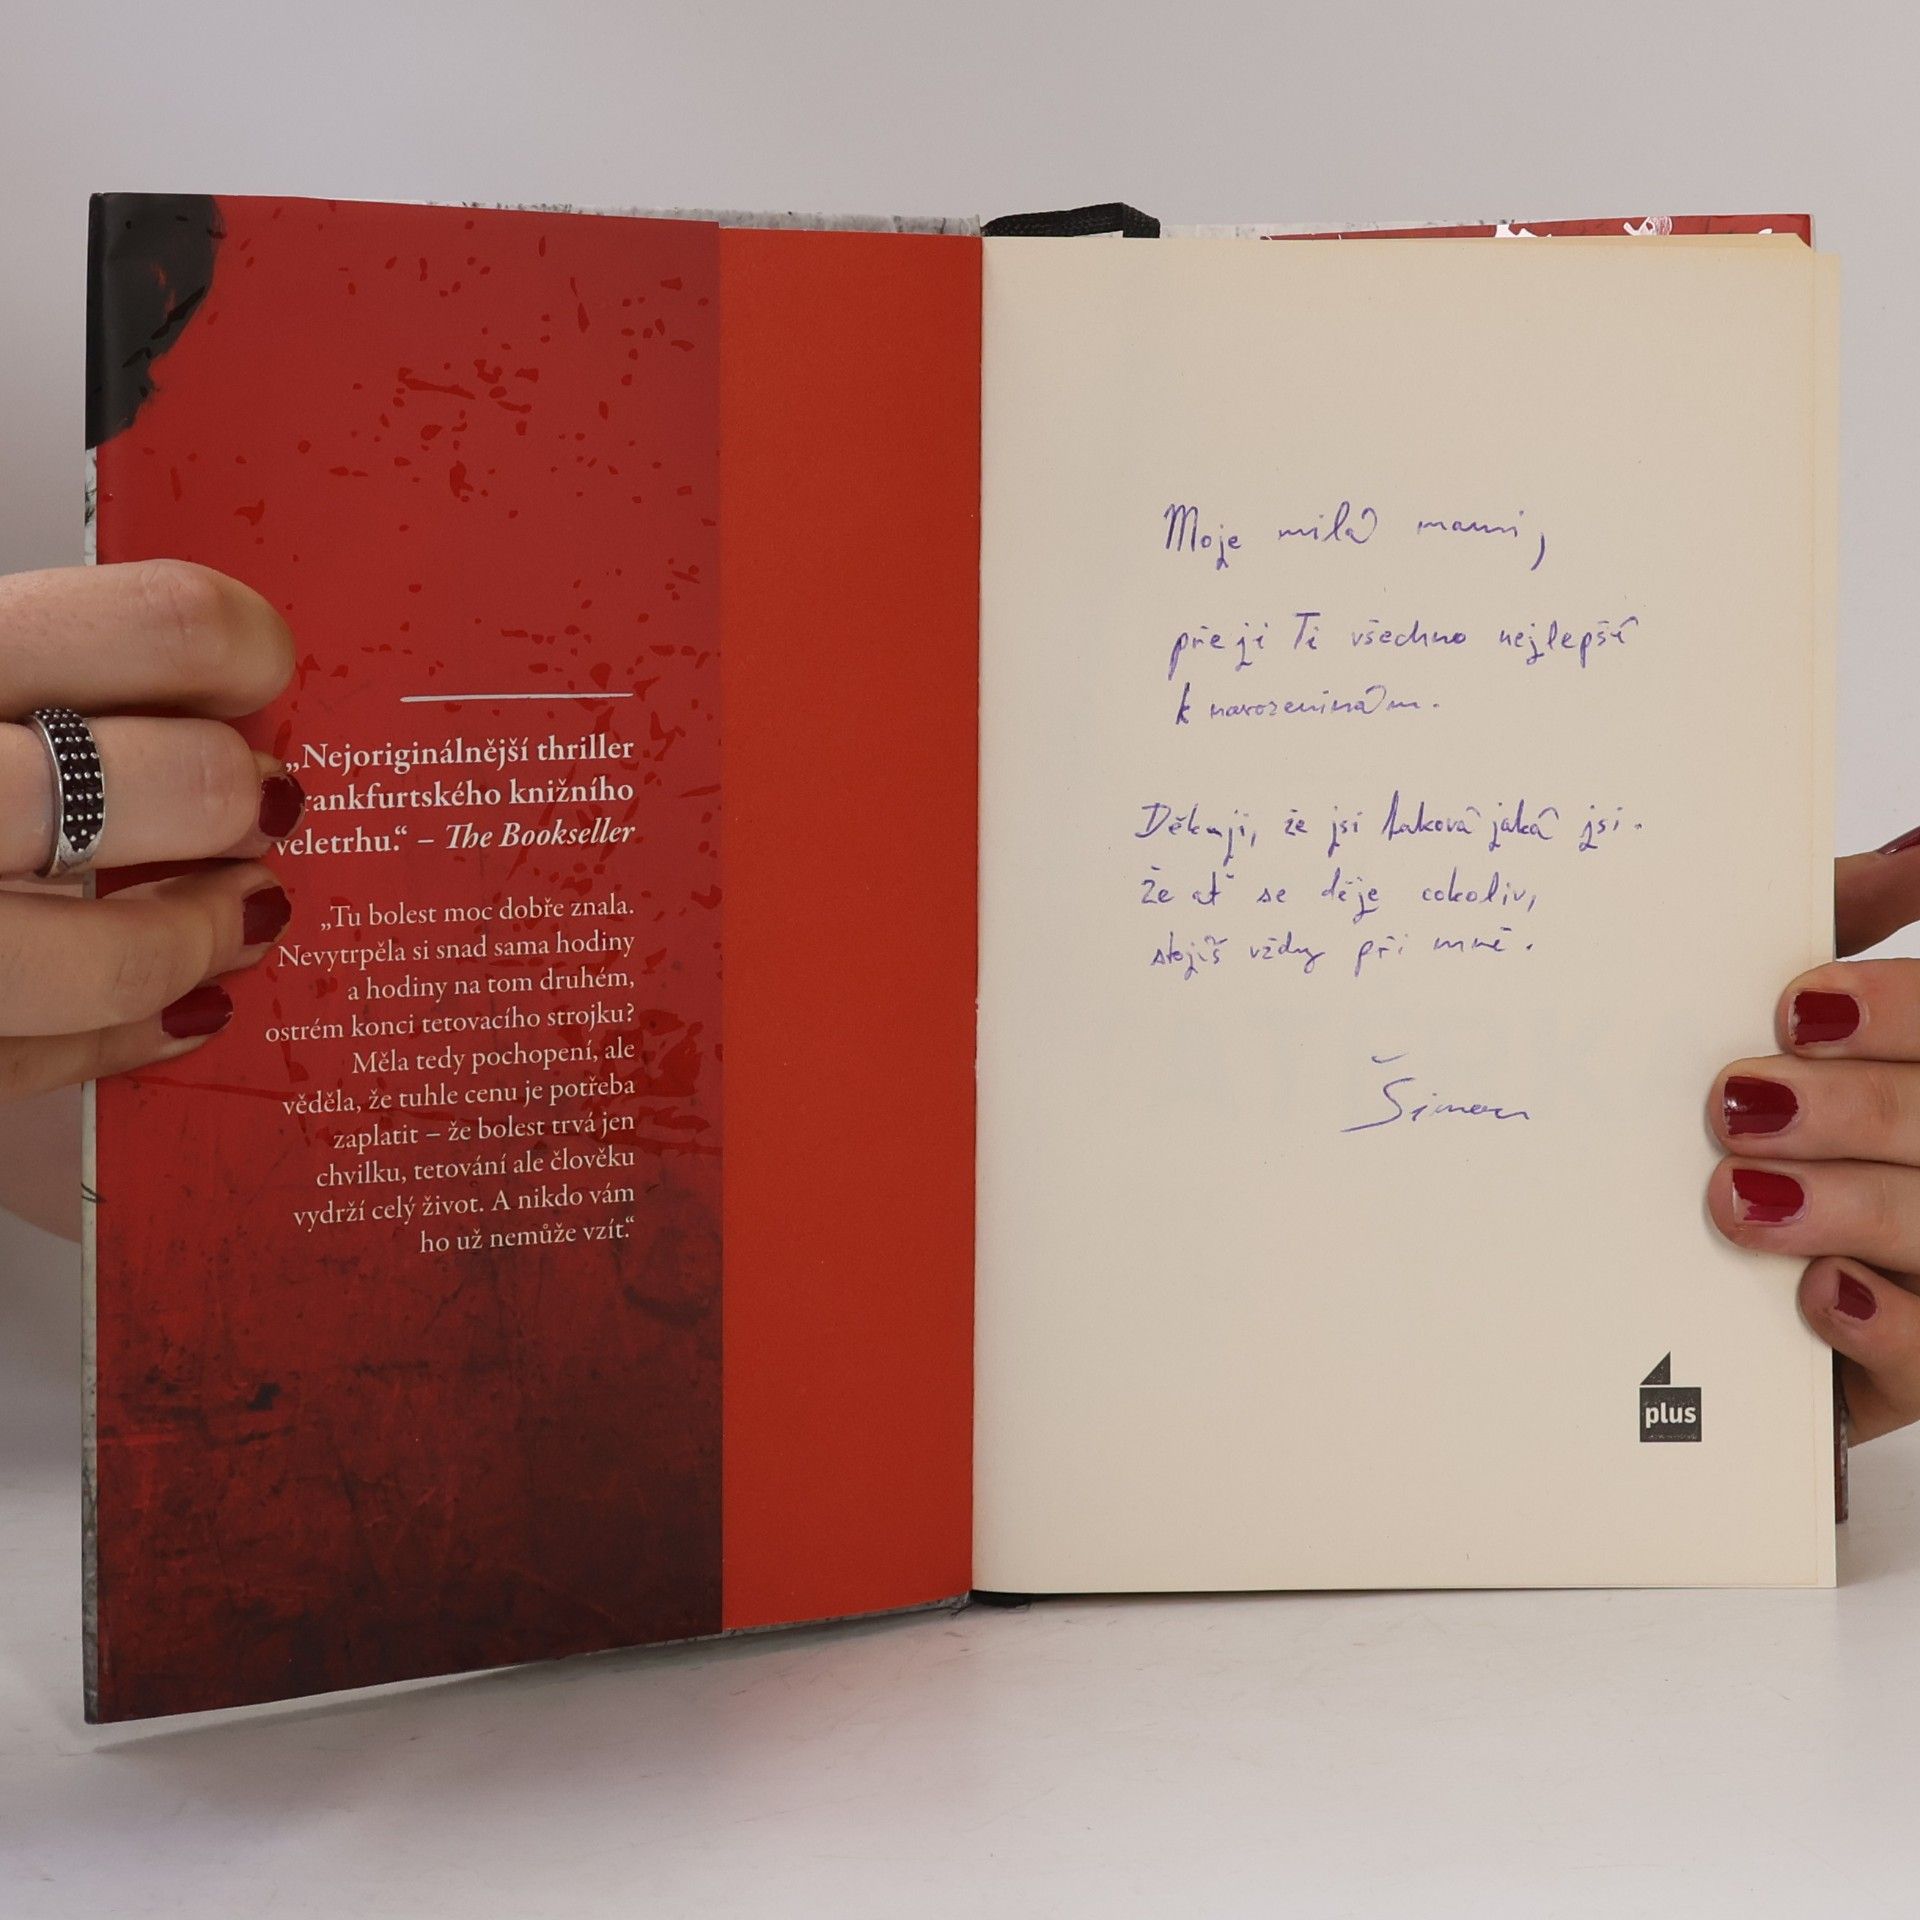 „Nejoriginálnější thriller
rankfurtského knižního
veletrhu.“ – The Bookseller
„Tu bolest moc dobře znala.
Nevytrpěla si snad sama hodiny
a hodiny na tom druhém,
ostrém konci tetovacího strojku?
Měla tedy pochopení, ale
věděla, že tuhle cenu je potřeba
zaplatit – že bolest trvá jen
chvilku, tetování ale člověku
vydrží celý život. A nikdo vám
ho už nemůže vzít.“
Moje milá mami,
přeji Ti všechno nejlepší
k narozeninám.
Děkuji, že jsi taková jaká jsi.
Že ať se děje cokoliv,
stojíš vždy při mně.
Šimon
plus